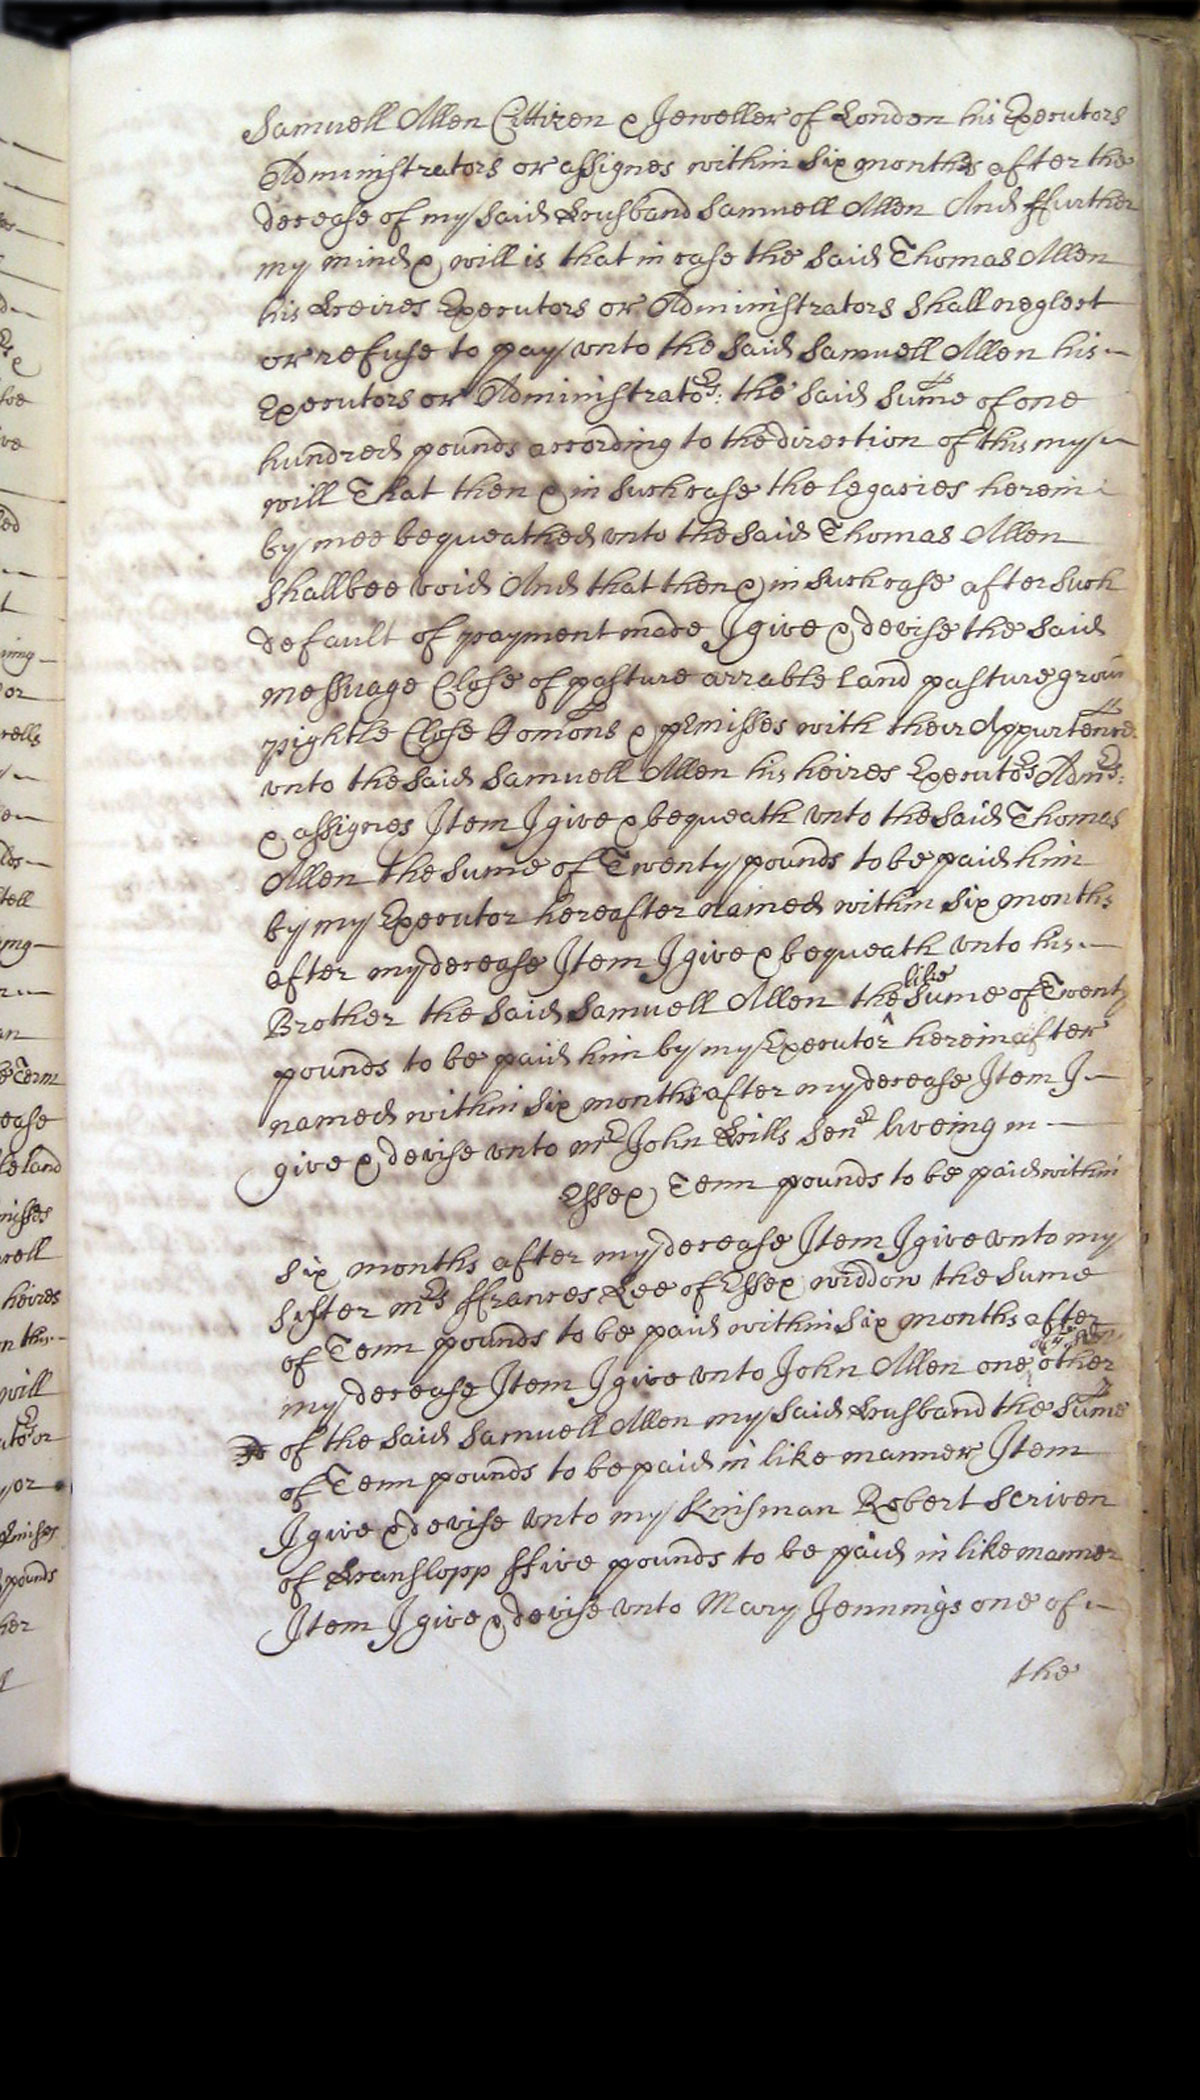 Samuell Allen Cittizen & Jeweller of London his Executors
Administrators or assignes within Six months after the
decease of my said Husband Samuell Allen And ffurther
my mind & will is that in case the said Thomas Allen
his Heires Executors or Administrators shall neglect
or refuse to pay vnto the said Samuell Allen his
Executors or Administrato:rs the said sume of one
hundred pounds according to the direction of this my
will That then & in such case the legacies herein
by mee bequeathed vnto the said Thomas Allen
shallbee void And that then & in such case after such
default of payment made I give & devise the said
messuage Close of pasture arrable land pasture ground
pightle Close Comons & pmisses with their Appurtence
vnto the said Samuell Allen his heires Executors Adm:rs
& assignes Item I give & bequeath vnto the said Thomas
Allen the sume of Twenty pounds to be paid him
by my Executor hereafter named within six months
after my decease Item I give & bequeath vnto his
Brother the said Samuell Allen the like sume of Twenty
pounds to be paid him by my Executor hereinafter
named within six months after my decease Item I
give & devise vnto mr John Hills Senr liveing in
Essex Tenn pounds to be paid within
six months after my decease Item I give vnto my
sister mrs ffrances Lee of Essex widdow the sume
of Tenn pounds to be paid within six months after
my decease Item I give vnto John Allen one other
of the said Samuell Allen my said Husband the sume
of Tenn pounds to be paid in like manner Item
I give & devise vnto my Kinsman Robert Scriven
of Hanslopp ffive pounds to be paid in like manner
Item I give & devise vnto Mary Jennings one of
the